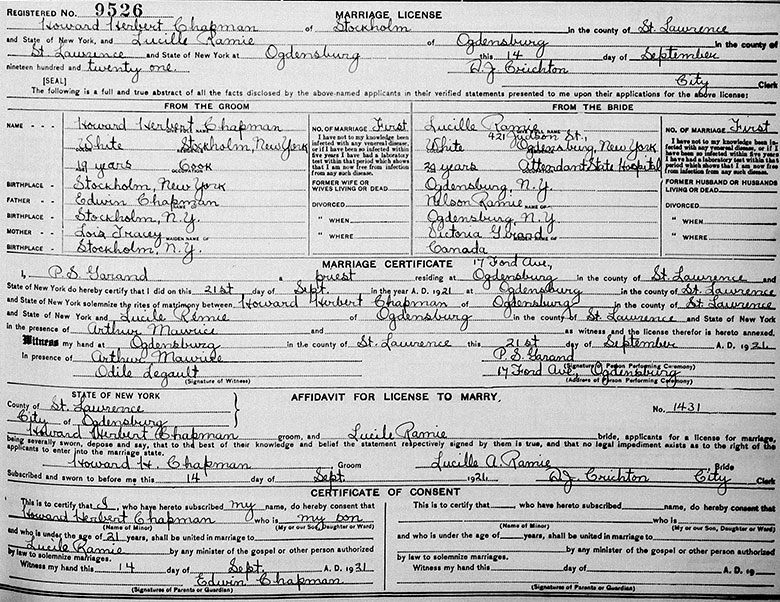 REGISTERED NO. 9526
MARRIAGE LICENSE
Howard Herbert Chapman of Stockholm in the county of St. Lawrence
and State of New York, and Lucille Ramie of Ogdensburg in the county of
St. Lawrence and State of New York at Ogdensburg this 14 day of September
nineteen hundred and twenty one. D.J. Crichton
[SEAL] City Clerk
The following is a full and true abstract of all the facts disclosed by the above-named applicants in their verified statements presented to me upon their applications for the above license:
FROM THE GROOM FROM THE BRIDE
NAME - - - Howard Herbert Chapman NO. OF MARRIAGE First Lucille Ramie NO. OF MARRIAGE First
421 Judson St.,
White Stockholm, New York White Ogdensburg, New York
I have not to my knowledge been infected with any venereal disease, or if I have been so infected within five years I have had a laboratory test within that period which shows that I am now free from infection from any such disease.
I have not to my knowledge been infected with any venereal disease, or if I have been so infected within five years I have had a laboratory test within that period which shows that I am now free from infection from any such disease.
19 years Cook years Attendant State Hospital
BIRTHPLACE - Stockholm, New York FORMER WIFE OR WIVES LIVING OR DEAD Ogdensburg, N.Y. FORMER HUSBAND OR HUSBANDS LIVING OR DEAD
FATHER - - Edwin Chapman DIVORCED Nelson Ramie DIVORCED
BIRTHPLACE - Stockholm, N.Y. " WHEN Ogdensburg, N.Y. " WHEN
MOTHER - - Lois Tracey MAIDEN NAME OF " WHERE Victoria Girard " WHERE
BIRTHPLACE - Stockholm, N.Y. Canada
MARRIAGE CERTIFICATE 17 Ford Ave,
I, P.S. Garand a priest residing at Ogdensburg in the county of St. Lawrence and
State of New York do hereby certify that I did on this 21st day of Sept. in the year A. D. 1921 at Ogdensburg in the county of St. Lawrence
and State of New York solemnize the rites of matrimony between Howard Herbert Chapman of Ogdensburg in the county of St. Lawrence
and State of New York and Lucile Ramie of Ogdensburg in the county of St. Lawrence and State of New York
in the presence of Arthur Maurice and as witness and the license therefor is hereto annexed.
Witness my hand at Ogdensburg in the county of St. Lawrence this 21st day of September A. D. 1921
In presence of Arthur Maurice P.S. Garand
(Signature of Person Performing Ceremony)
Odile Legault 17 Ford Ave, Ogdensburg
(Signature of Witness) (Address of Person Performing Ceremony)
STATE OF NEW YORK
AFFIDAVIT FOR LICENSE TO MARRY, No. 1431
County of St. Lawrence
City of Ogdensburg
Howard Herbert Chapman groom, and Lucile Ramie bride, applicants for a license for marriage,
being severally sworn, depose and say, that to the best of their knowledge and belief the statement respectively signed by them is true, and that no legal impediment exists as to the right of the
applicants to enter into the marriage state.
Howard H. Chapman Groom Lucille A. Ramie Bride
Subscribed and sworn to before me this 14 day of Sept. 1921 D.J. Crichton City Clerk
CERTIFICATE OF CONSENT
This is to certify that I, who have hereto subscribed my name, do hereby consent that
Howard Herbert Chapman who is my son
(Name of Minor) (My or our Son, Daughter or Ward)
and who is under the age of 21 years, shall be united in marriage to
Lucile Ramie by any minister of the gospel or other person authorized
by law to solemnize marriages.
Witness my hand this 14 day of Sept. A. D. 1921
Edwin Chapman
(Signatures of Parents or Guardian)
This is to certify that , who have hereto subscribed name, do hereby consent that
who is
(Name of Minor) (My or our Son, Daughter or Ward)
and who is under the age of years, shall be united in marriage to
by any minister of the gospel or other person authorized
by law to solemnize marriages.
Witness my hand this day of A. D. 19
(Signatures of Parents or Guardian)